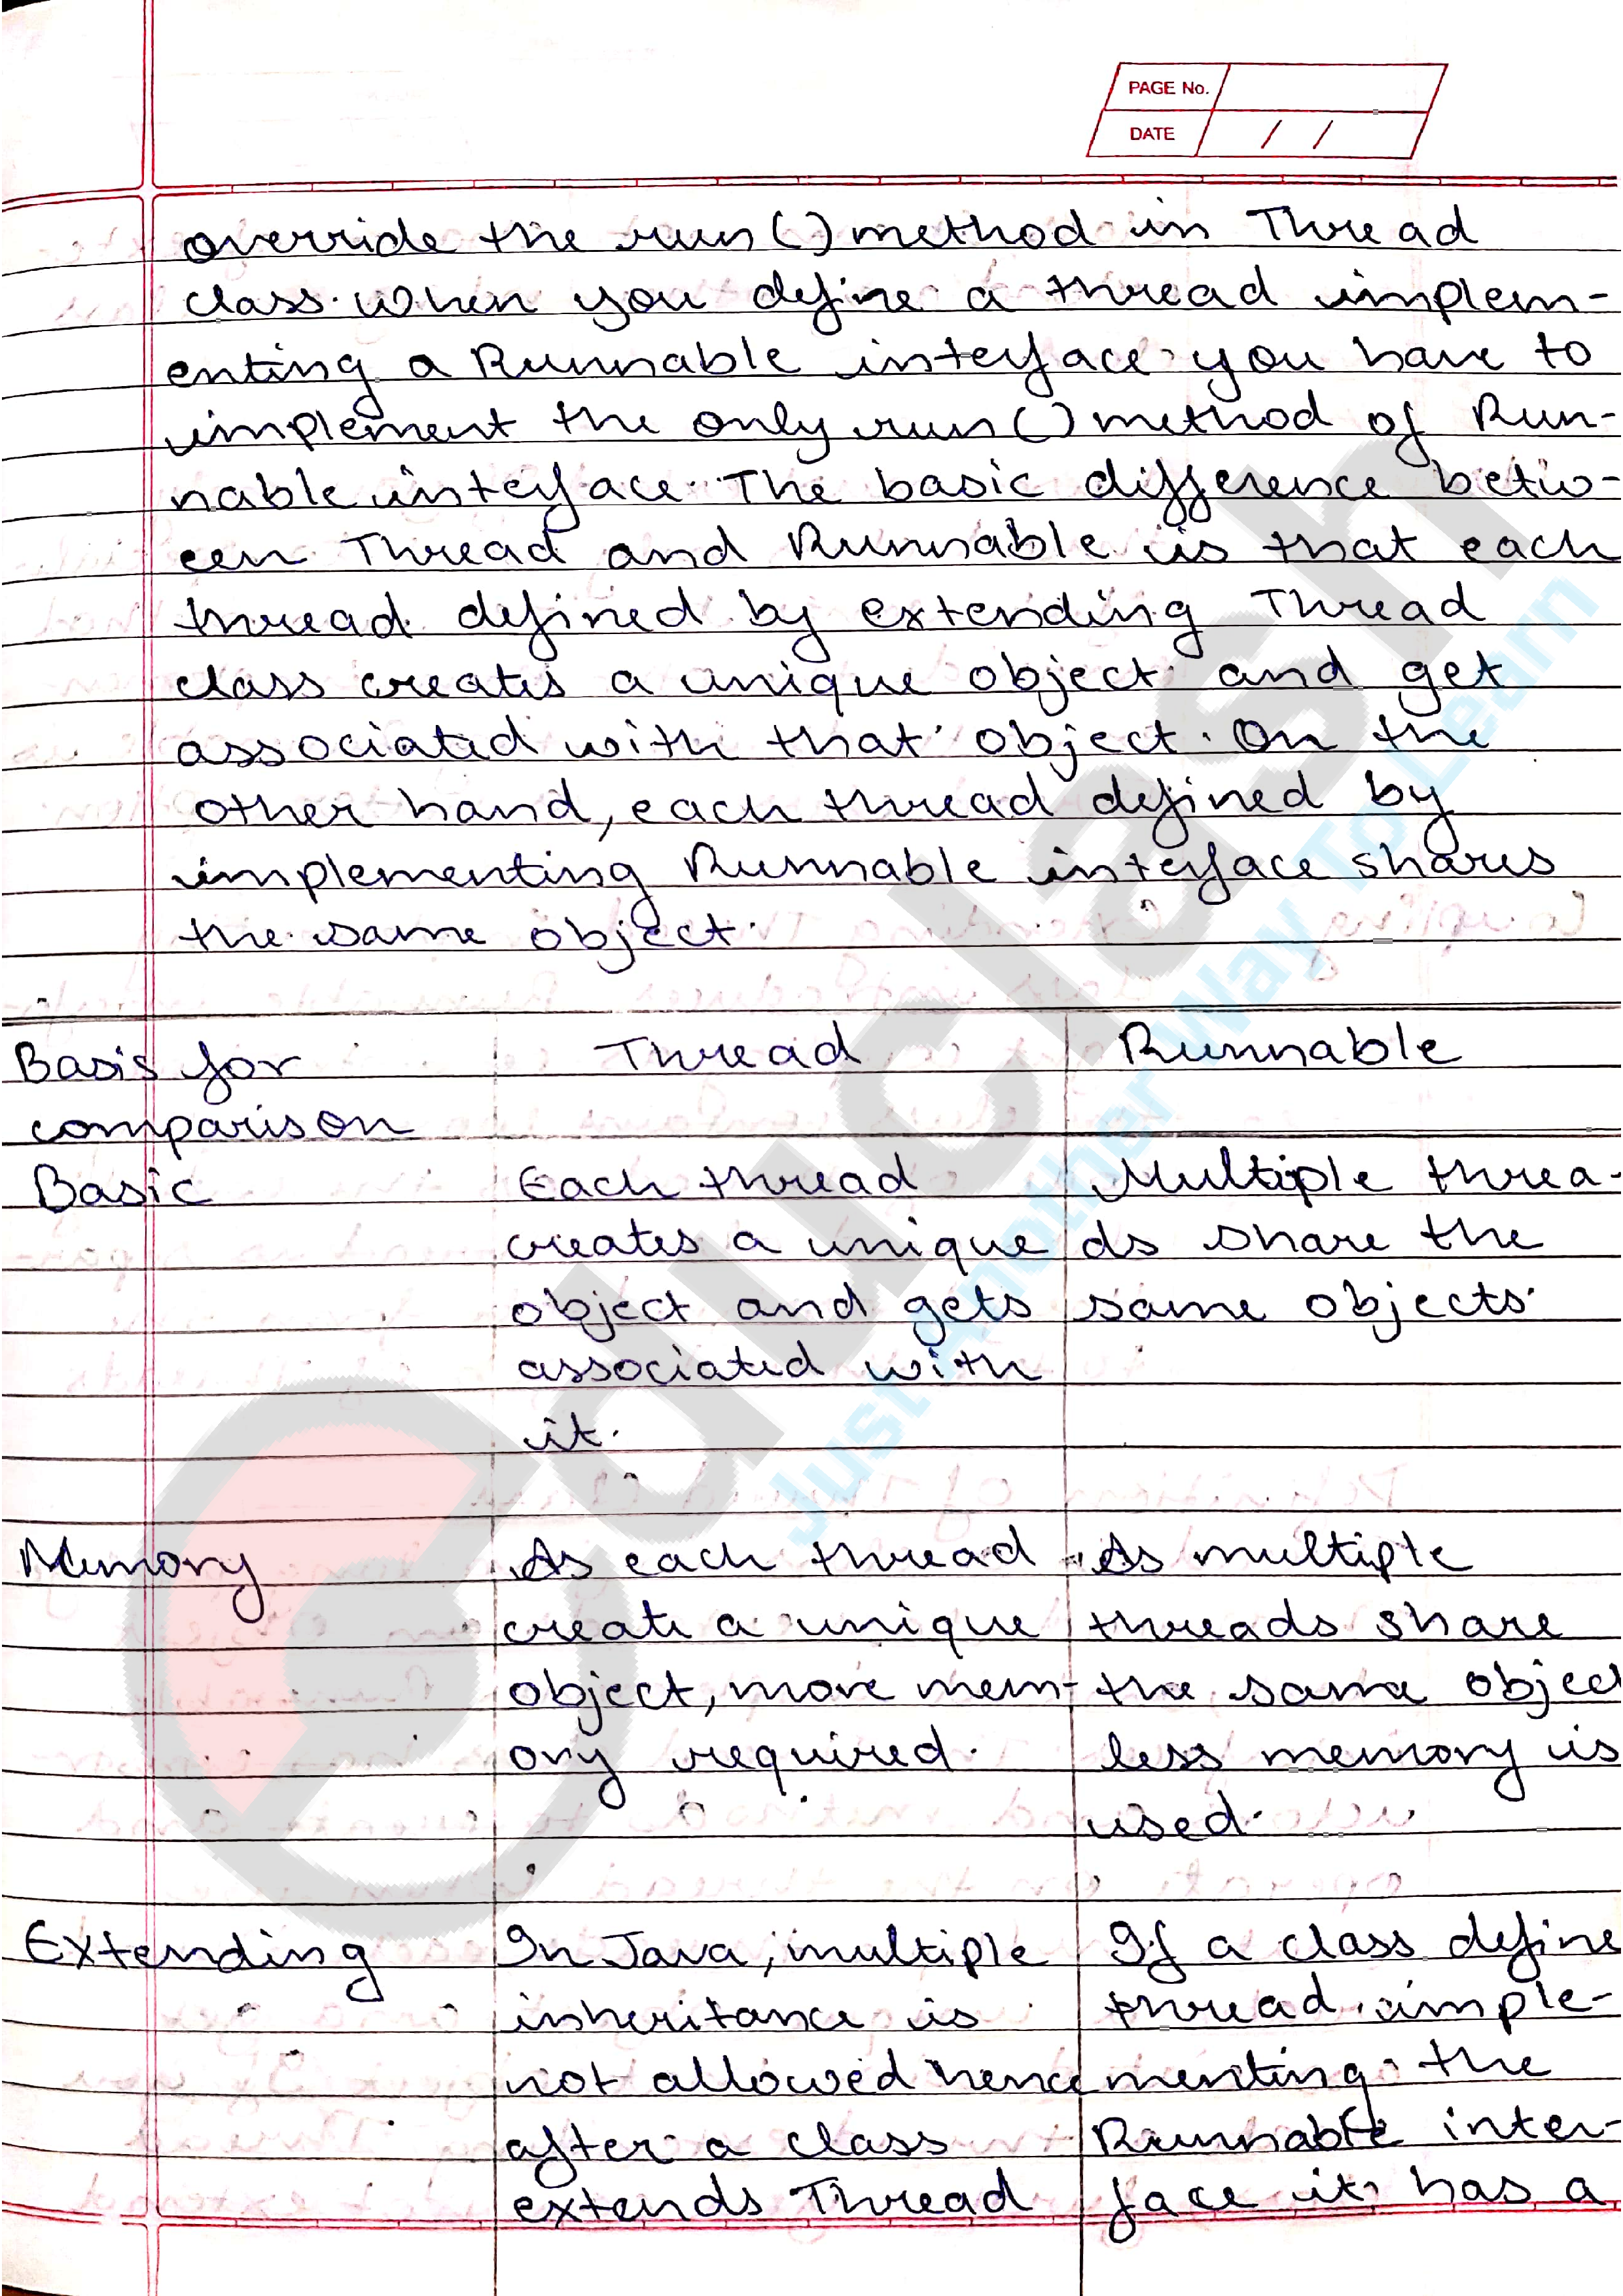 PAGE No.
DATE / /
override the run() method in Thread
class. When you define a thread implem-
enting a Runnable interface you have to
implement the only run() method of Run-
nable interface. The basic difference betw-
een Thread and Runnable is that each
thread defined by extending Thread
class creates a unique object and get
associated with that object. On the
other hand, each thread defined by
implementing Runnable interface shares
the same object.
Basis for comparison
Thread
Runnable
Basic
Each thread
creates a unique
object and gets
associated with
it.
Multiple threa-
ds share the
same objects.
Memory
As each thread
create a unique
object, more mem-
ory required.
As multiple
threads share
the same object
less memory is
used.
Extending
In Java, multiple
inheritance is
not allowed hence
after a class
extends Thread
If a class define
thread imple-
menting the
Runnable inter-
face it has a
educlash
Just Another Way To Learn